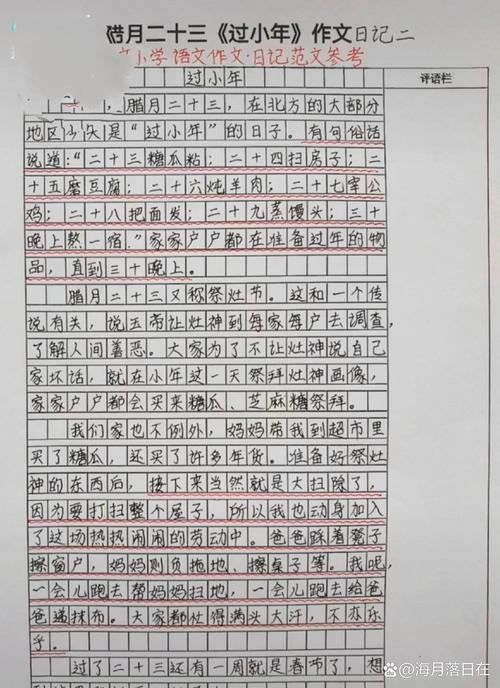 腊月二十三《过小年》作文日记二
小学语文作文·日记范文参考
过小年
评语栏
腊月二十三，在北方的大部分
地区今天是“过小年”的日子。有句俗话
说道：“二十三糖瓜粘；二十四扫房子；二
十五磨豆腐；二十六炖羊肉；二十七宰公
鸡；二十八把面发；二十九蒸馒头；三十
晚上熬一宿.”家家户户都在准备过年的物
品，直到三十晚上。
腊月二十三又称祭灶节。这和一个传
说有关，说玉帝让灶神到每家每户去调查，
了解人间善恶。大家为了不让灶神说自己
家坏话，就在小年这一天祭拜灶神画像，
家家户户都会买来糖瓜、芝麻糖祭拜。
我们家也不例外，妈妈带我到超市里
买了糖瓜，还买了许多年货。准备好祭灶
神的东西后，接下来当然就是大扫除了，
因为要打扫整个屋子，所以我也动身加入
了这场热热闹闹的劳动中。爸爸踩着凳子
擦窗户，妈妈则负拖地、擦桌子等。我呢，
一会儿跑去帮妈妈扫地，一会儿跑去给爸
爸递抹布。大家都忙得满头大汗，不亦乐
乎。
过了二十三还有一周就是春节了，想
@海月落日在